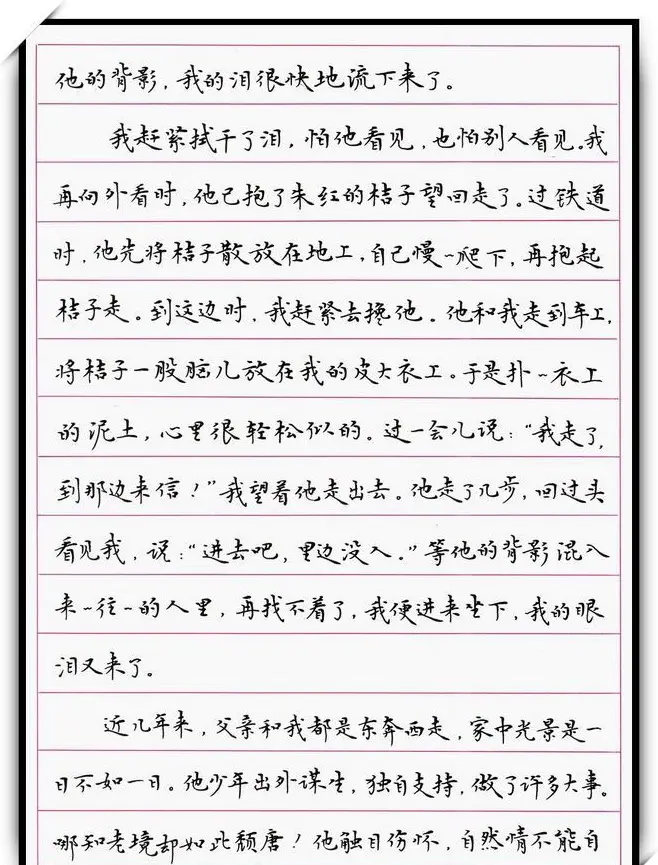 他的背影，我的泪很快地流下来了。
我赶紧拭干了泪，怕他看见，也怕别人看见。我
再向外看时，他已抱了朱红的桔子望回走了。过铁道
时，他先将桔子散放在地上，自己慢~爬下，再抱起
桔子走。到这边时，我赶紧去搀他。他和我走到车上，
将桔子一股脑儿放在我的皮大衣上。于是扑~衣上
的泥土，心里很轻松似的。过一会儿说：“我走了，
到那边来信！”我望着他走出去。他走了几步，回过头
看见我，说：“进去吧，里边没人。”等他的背影混入
来~往~的人里，再找不着了，我便进来坐下，我的眼
泪又来了。
近几年来，父亲和我都是东奔西走，家中光景是一
日不如一日。他少年出外谋生，独自支持，做了许多大事。
哪知老境却如此颓唐！他触目伤怀，自然情不能自